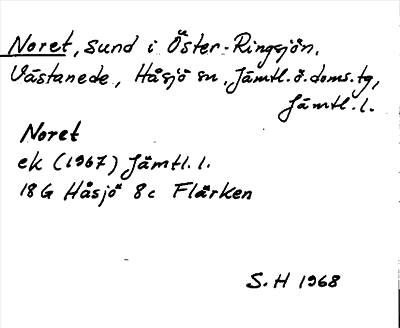 Noret, sund i Öster-Ringsjön.
Västanede, Håsjö sn, Jämtl. ö. doms.tg,
Jämtl. l.
Noret
ek (1967) Jämtl. l.
18G Håsjö 8c Flärken
S. H 1968